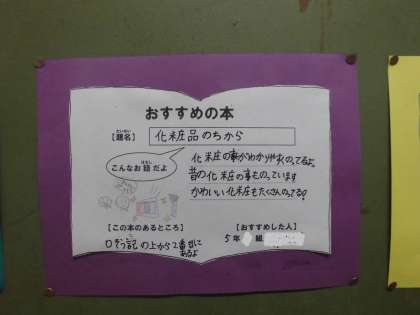 おすすめの本
【題名】 化粧品のちから
こんなお話だよ
化粧の事がわかりやすくのってるよ。
昔の化粧の事ものっています
かわいい化粧もたくさんのってる?
【この本のあるところ】 【おすすめした人】
の上から2番目に 5年 組
あるよ